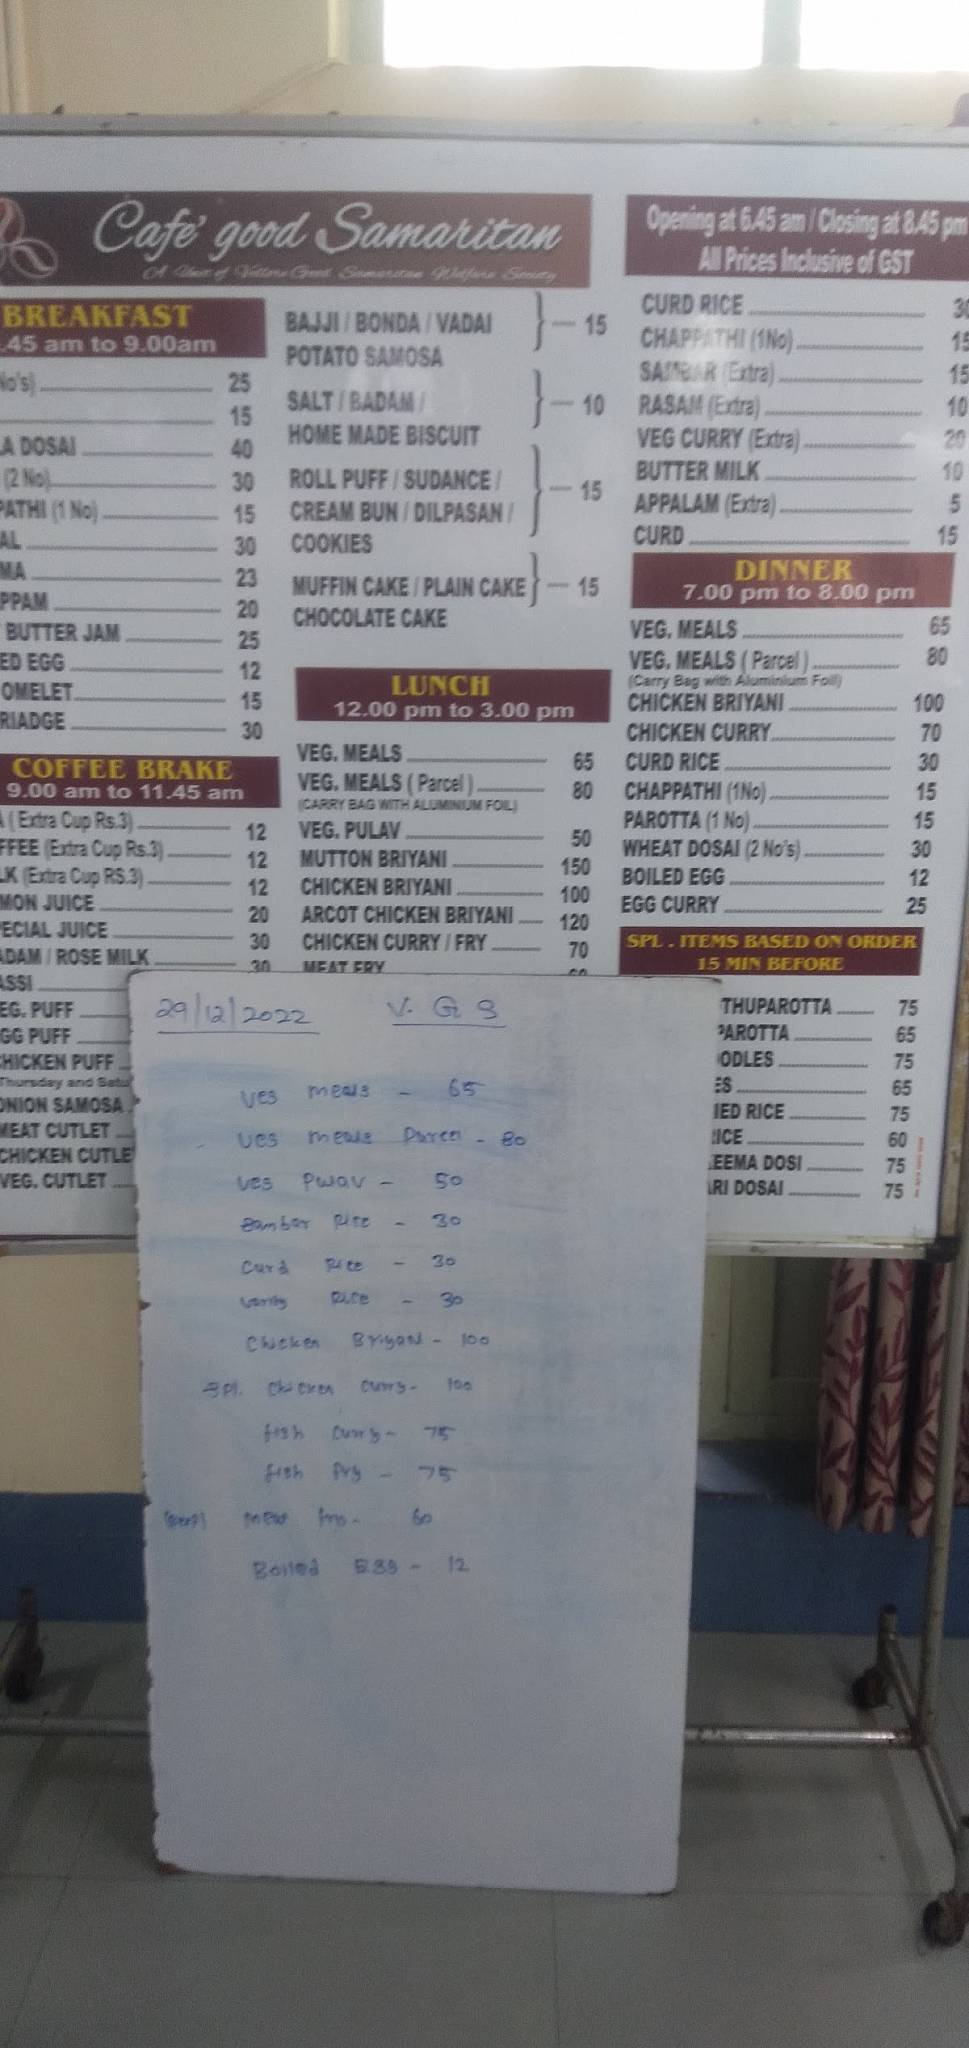 Cafe' good Samaritan
A Unit of Vellore Good Samaritan Welfare Society
Opening at 6.45 am / Closing at 8.45 pm
All Prices Inclusive of GST
BREAKFAST
.45 am to 9.00am
No's) 25
15
LA DOSAI 40
(2 No) 30
PATHI (1 No) 15
AL 30
MA 23
PPAM 20
BUTTER JAM 25
ED EGG 12
OMELET 15
RIADGE 30
COFFEE BRAKE
9.00 am to 11.45 am
A ( Extra Cup Rs.3) 12
FFEE (Extra Cup Rs.3) 12
LK (Extra Cup RS.3) 12
MON JUICE 20
PECIAL JUICE 30
ADAM / ROSE MILK 30
ASSI
EG. PUFF
GG PUFF
HICKEN PUFF
Thursday and Satu
ONION SAMOSA
MEAT CUTLET
CHICKEN CUTLE
VEG. CUTLET
BAJJI / BONDA / VADAI
POTATO SAMOSA
15
SALT / BADAM /
HOME MADE BISCUIT
10
ROLL PUFF / SUDANCE /
CREAM BUN / DILPASAN /
COOKIES
15
MUFFIN CAKE / PLAIN CAKE
CHOCOLATE CAKE
15
LUNCH
12.00 pm to 3.00 pm
VEG. MEALS 65
VEG. MEALS ( Parcel ) 80
(CARRY BAG WITH ALUMINIUM FOIL)
VEG. PULAV 50
MUTTON BRIYANI 150
CHICKEN BRIYANI 100
ARCOT CHICKEN BRIYANI 120
CHICKEN CURRY / FRY 70
MEAT FRY 60
CURD RICE 30
CHAPPATHI (1No) 15
SAMBAR (Extra) 15
RASAM (Extra) 10
VEG CURRY (Extra) 20
BUTTER MILK 10
APPALAM (Extra) 5
CURD 15
DINNER
7.00 pm to 8.00 pm
VEG. MEALS 65
VEG. MEALS ( Parcel ) 80
(Carry Bag with Aluminium Foil)
CHICKEN BRIYANI 100
CHICKEN CURRY 70
CURD RICE 30
CHAPPATHI (1No) 15
PAROTTA (1 No) 15
WHEAT DOSAI (2 No's) 30
BOILED EGG 12
EGG CURRY 25
SPL . ITEMS BASED ON ORDER
15 MIN BEFORE
THUPAROTTA 75
PAROTTA 65
ODLES 75
ES 65
IED RICE 75
RICE 60
EEMA DOSI 75
ARI DOSAI 75
29/12/2022 V. G S
veg meals - 65
veg meals Parcel - 80
veg Pulav - 50
Sambar Rice - 30
Curd Rice - 30
Rice - 30
Chicken Briyani - 100
Spl. Chicken Curry - 100
fish Curry - 75
fish fry - 75
60
Boiled Egg - 12